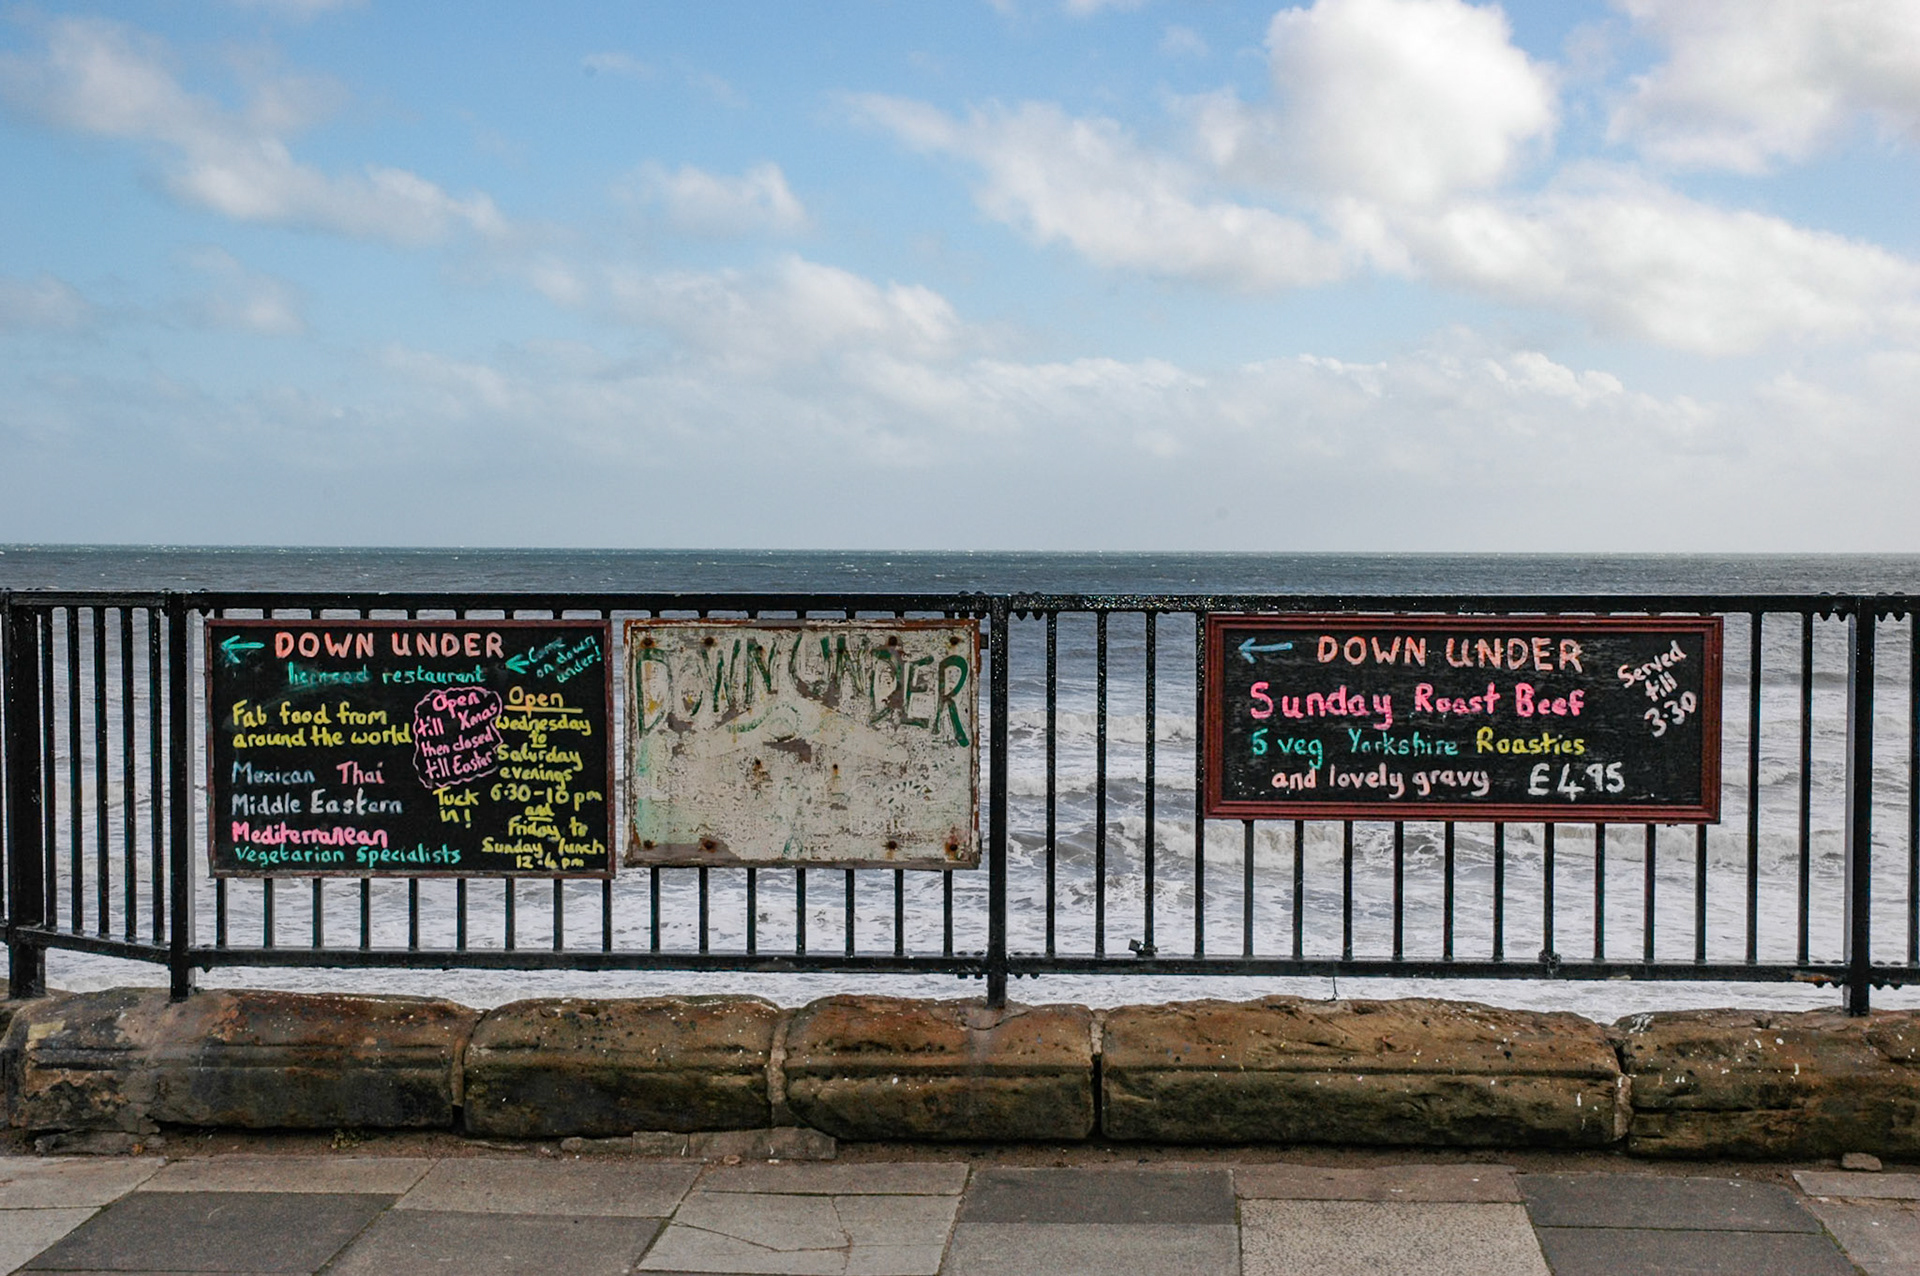 DOWN UNDER
licensed restaurant
Come
on down
under!
Fab food from
around the world
Mexican Thai
Middle Eastern
Mediterranean
Vegetarian Specialists
Open
till Xmas
then closed
till Easter
Tuck
in!
Open
Wednesday
to
Saturday
evenings
6·30-10 pm
and
Friday to
Sunday lunch
12-4 pm
DOWN UNDER
DOWN UNDER
Sunday Roast Beef
5 veg Yorkshire Roasties
and lovely gravy £4.95
Served
till
3·30